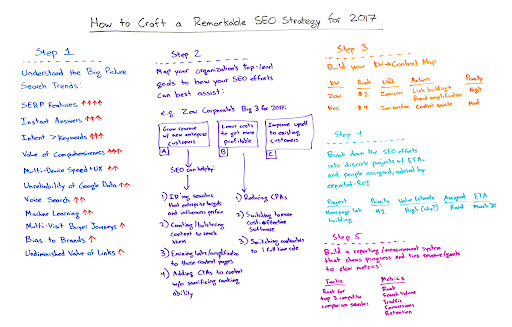 How to Craft a Remarkable SEO Strategy for 2017
Step 1
Understand the Big Picture
Search Trends:
SERP Features ↑↑↑↑
Instant Answers ↑↑↑
Intent > Keywords ↑↑↑
Value of Comprehensiveness ↑↑↑
Multi-Device Speed + UX ↑↑
Unreliability of Google Data ↑↑
Voice Search ↑↑
Machine Learning ↑↑
Multi-Visit Buyer Journeys ↑
Bias to Brands ↑
Undiminished Value of Links ↑
Step 2
Map your organization's top-level
goals to how your SEO efforts
can best assist:
e.g. Zow Corporate's Big 3 for 2017:
Grow revenue
w/ new enterprise
customers
A
Lower costs
to get more
profitable
B
Improve upsell
to existing
customers
C
SEO can help by:
1) ID'ing searches
that enterprise targets
and influencers perform
2) Creating/
content to reach
them
3) Earning links/amplification
to those content pages
4) Adding CTAs to content
w/o sacrificing ranking
ability
1) Reducing CPAs
2) Switching to more
cost-effective
Software
3) Switching contractors
to 1 full time role
Step 3
Build your KW→Content Map
KW Rank URL Action Priority
Zow #2 Zow.com Link building + High
Brand amplification
#4 Content rewrite Med
Step 4
Break down the SEO efforts
into discrete projects w/ ETAs
and people assigned, ordered by
expected ROI
Project Priority Value Estimate Assigned ETA
Homepage link #1 High (why?) Rand March 30
building
Step 5
Build a reporting/measurement system
that shows progress and ties revenue/goals
to clear metrics:
Tactic Metrics
Rank for
top 3 competitor
comparison searches
Rank
Search Volume
Traffic
Conversions
Retention